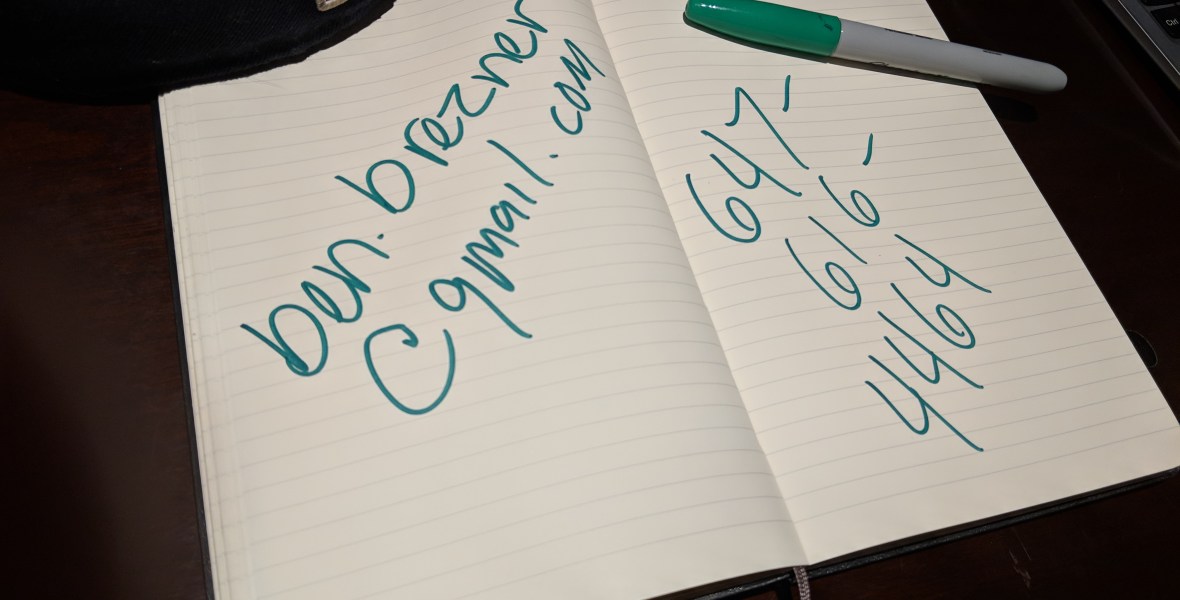 ben.brezner
@gmail.com
647-
616-
4464
Ctrl